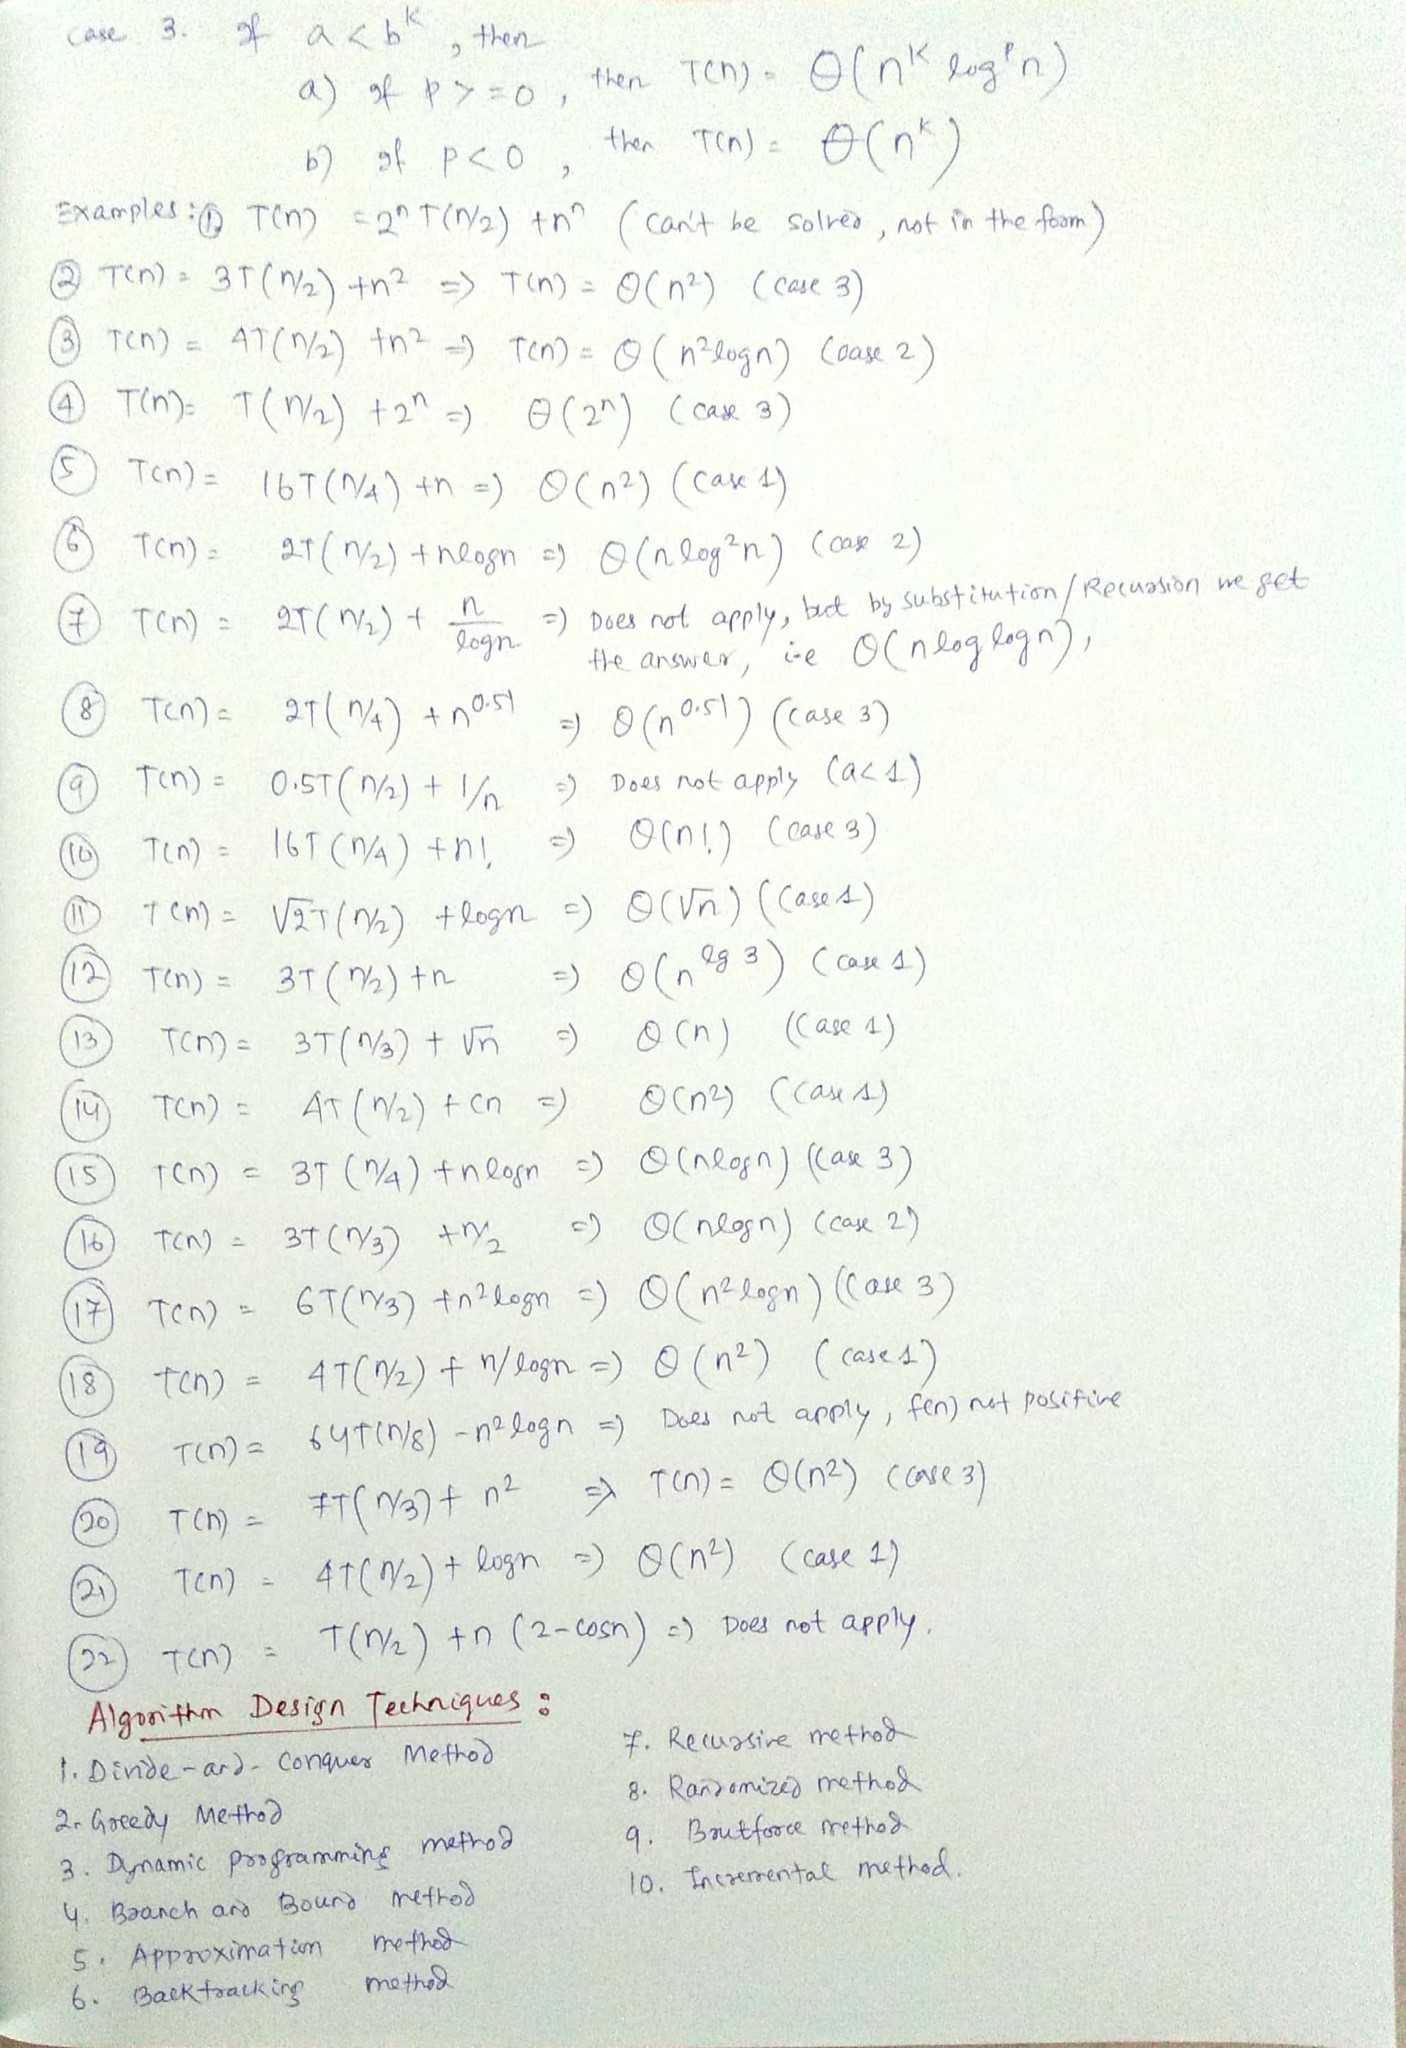 Case 3. If a < b^k, then
a) If p >= 0, then T(n) = Θ(n^k log^p n)
b) If p < 0, then T(n) = Θ(n^k)
Examples: ① T(n) = 2^n T(n/2) + n^n (can't be solved, not in the form)
② T(n) = 3T(n/2) + n² => T(n) = Θ(n²) (case 3)
③ T(n) = 4T(n/2) + n² => T(n) = Θ(n² log n) (case 2)
④ T(n) = T(n/2) + 2^n => Θ(2^n) (case 3)
⑤ T(n) = 16T(n/4) + n => Θ(n²) (case 1)
⑥ T(n) = 2T(n/2) + n log n => Θ(n log² n) (case 2)
⑦ T(n) = 2T(n/2) + n/log n => Does not apply, but by substitution/Recursion we get
the answer, i.e Θ(n log log n),
⑧ T(n) = 2T(n/4) + n^0.51 => Θ(n^0.51) (case 3)
⑨ T(n) = 0.5T(n/2) + 1/n => Does not apply (a<1)
⑩ T(n) = 16T(n/4) + n! => Θ(n!) (case 3)
⑪ T(n) = √2T(n/2) + log n => Θ(√n) (case 1)
⑫ T(n) = 3T(n/2) + n => Θ(n^lg 3) (case 1)
⑬ T(n) = 3T(n/3) + √n => Θ(n) (case 1)
⑭ T(n) = 4T(n/2) + cn => Θ(n²) (case 1)
⑮ T(n) = 3T(n/4) + n log n => Θ(n log n) (case 3)
⑯ T(n) = 3T(n/3) + n/2 => Θ(n log n) (case 2)
⑰ T(n) = 6T(n/3) + n² log n => Θ(n² log n) (case 3)
⑱ T(n) = 4T(n/2) + n/log n => Θ(n²) (case 1)
⑲ T(n) = 64T(n/8) - n² log n => Does not apply, f(n) not positive
⑳ T(n) = 7T(n/3) + n² => T(n) = Θ(n²) (case 3)
㉑ T(n) = 4T(n/2) + log n => Θ(n²) (case 1)
㉒ T(n) = T(n/2) + n (2-cos n) => Does not apply.
Algorithm Design Techniques :
1. Divide-and-Conquer Method
2. Greedy Method
3. Dynamic programming method
4. Branch and Bound method
5. Approximation method
6. Backtracking method
7. Recursive method
8. Randomized method
9. Brutforce method
10. Incremental method.